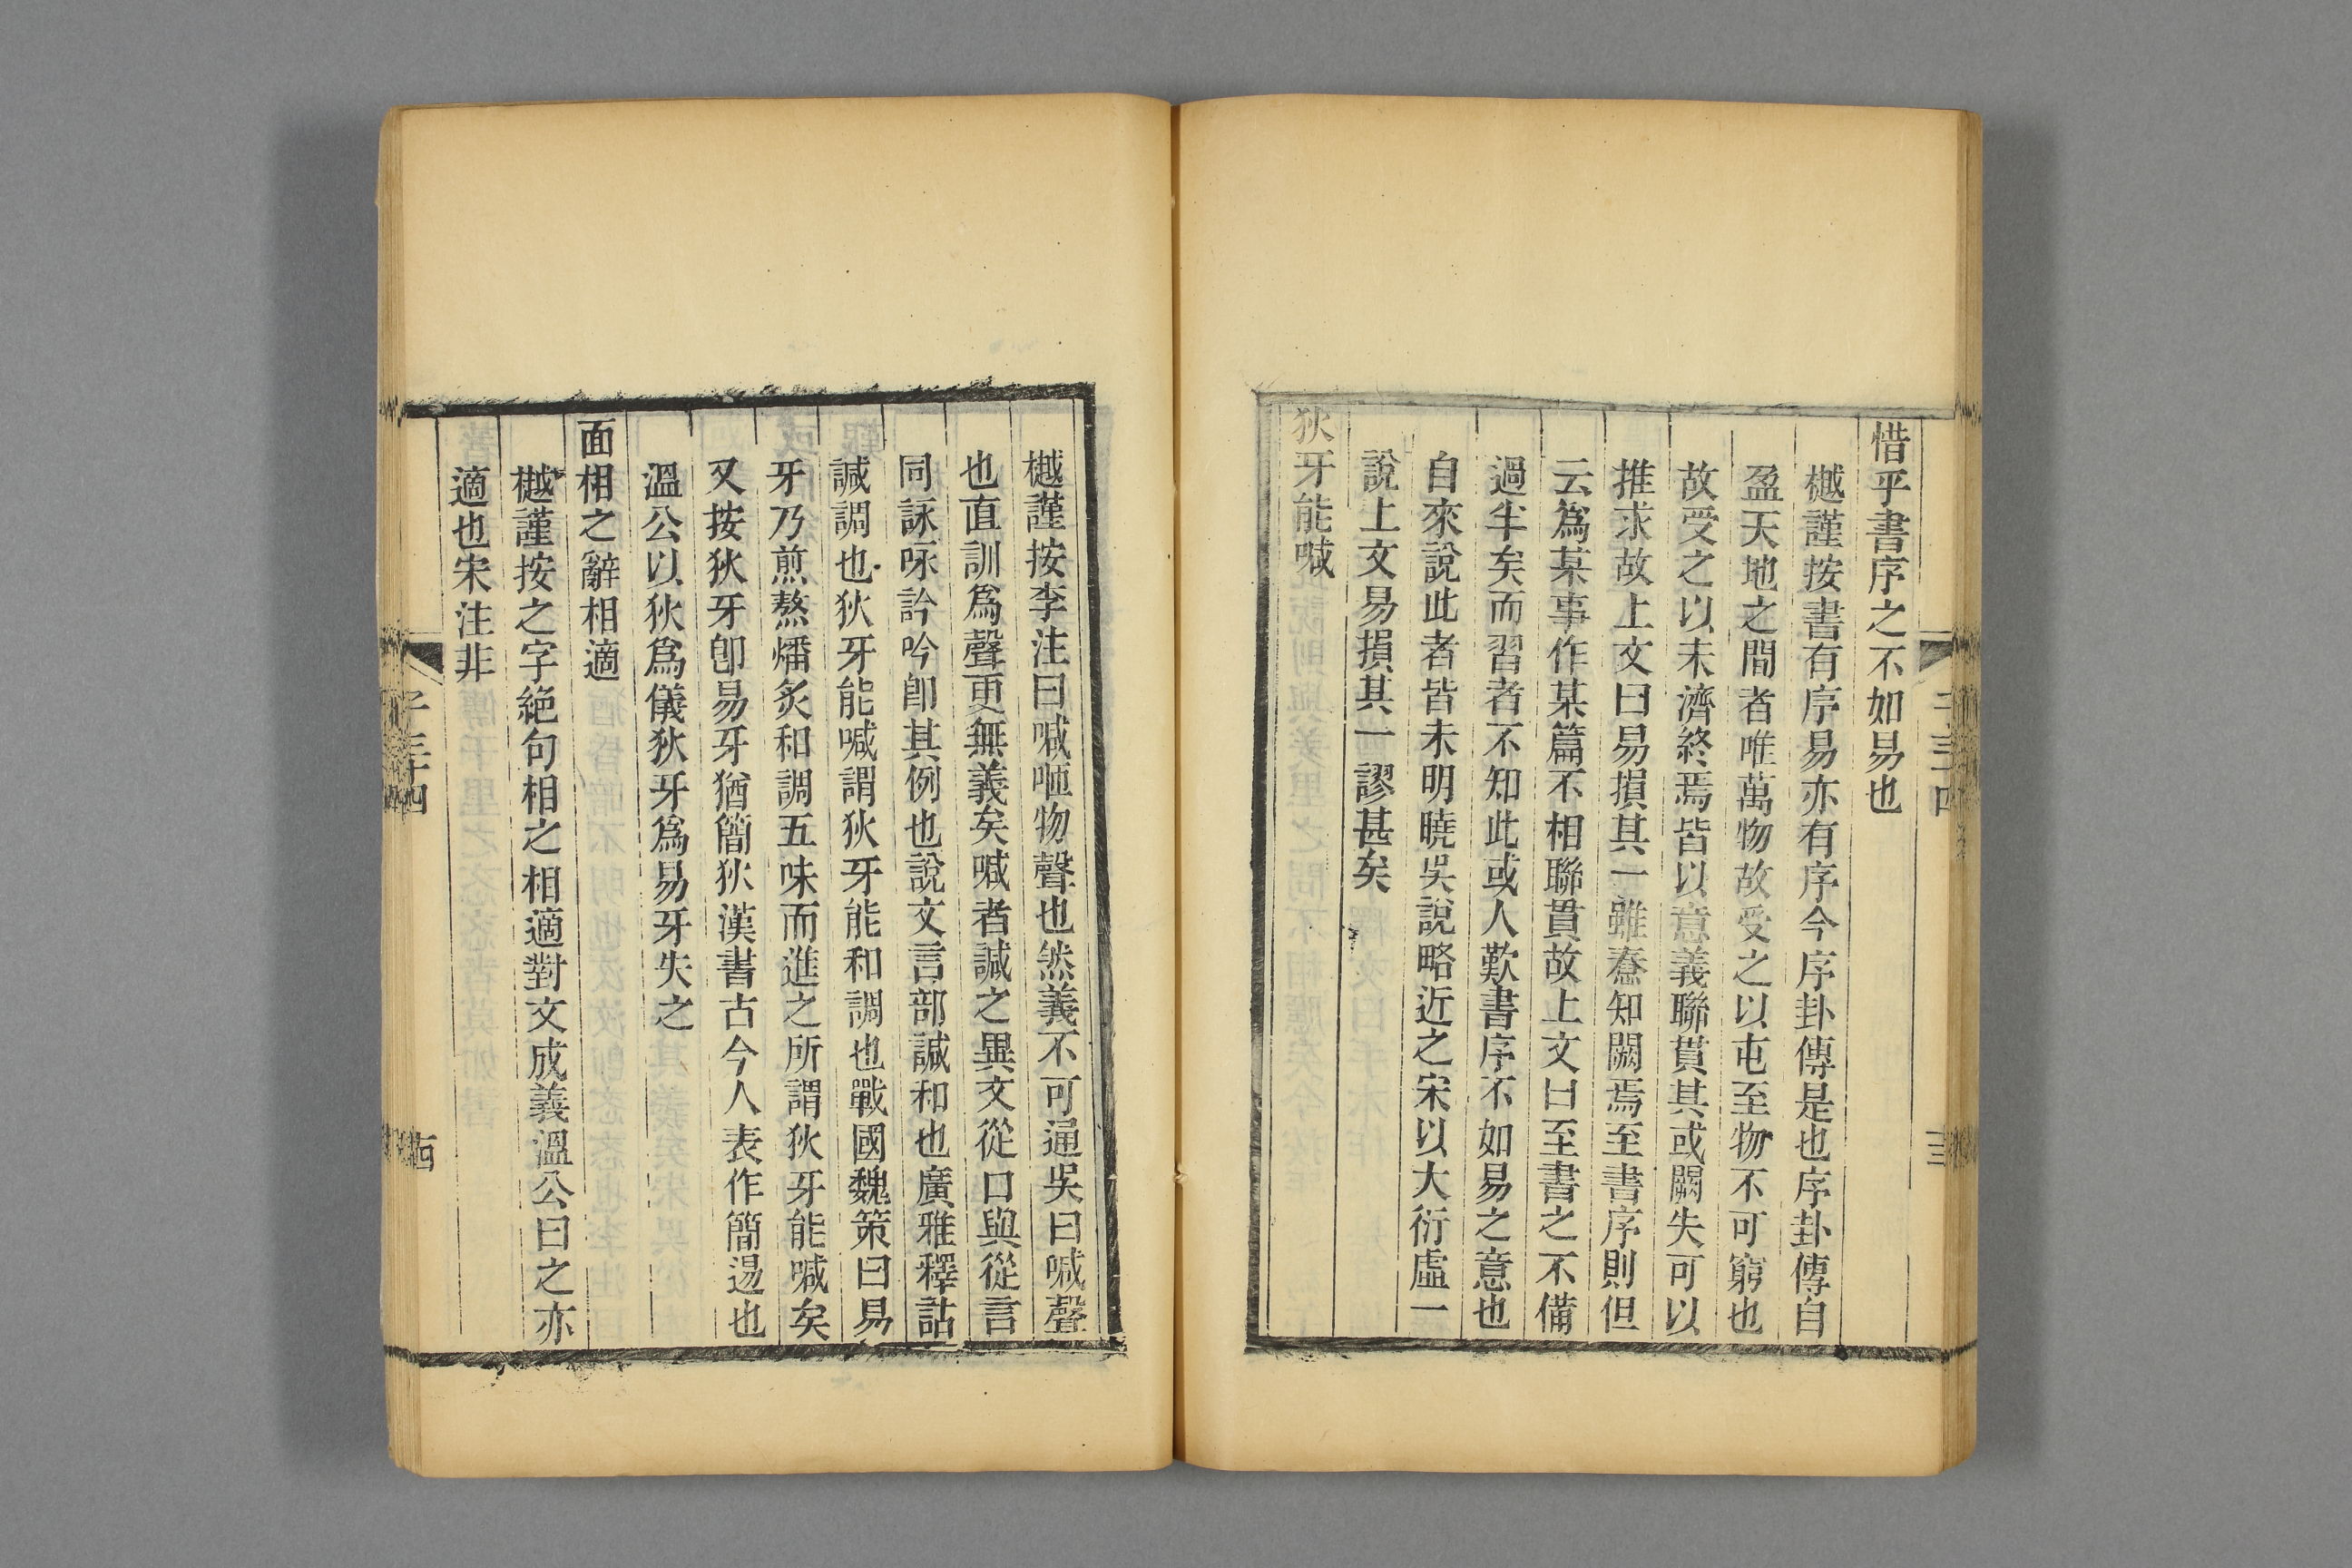 惜乎書序之不如易也
樾謹按書有序易亦有序今序卦傳是也序卦傳自
盈天地之間者唯萬物故受之以屯至物不可窮也
故受之以未濟終焉皆以意義聯貫其或闕失可以
推求故上文曰易損其一雖惷知闕焉至書序則但
云爲某事作某篇不相聯貫故上文曰至書之不備
過半矣而習者不知此或人歎書序不如易之意也
自來說此者皆未明曉吳說略近之宋以大衍虛一
說上文易損其一謬甚矣
狄牙能喊
樾謹按李注曰喊㗙物聲也然義不可通吳曰喊聲
也直訓爲聲更無義矣喊者諴之異文從口與從言
同詠咏訡吟卽其例也說文言部諴和也廣雅釋詁
諴調也狄牙能喊謂狄牙能和調也戰國魏策曰易
牙乃煎熬燔炙和調五味而進之所謂狄牙能喊矣
又按狄牙卽易牙猶簡狄漢書古今人表作簡逷也
溫公以狄爲儀狄牙爲易牙失之
面相之辭相適
樾謹按之字絕句相之相適對文成義溫公曰之亦
適也宋注非
子三十四